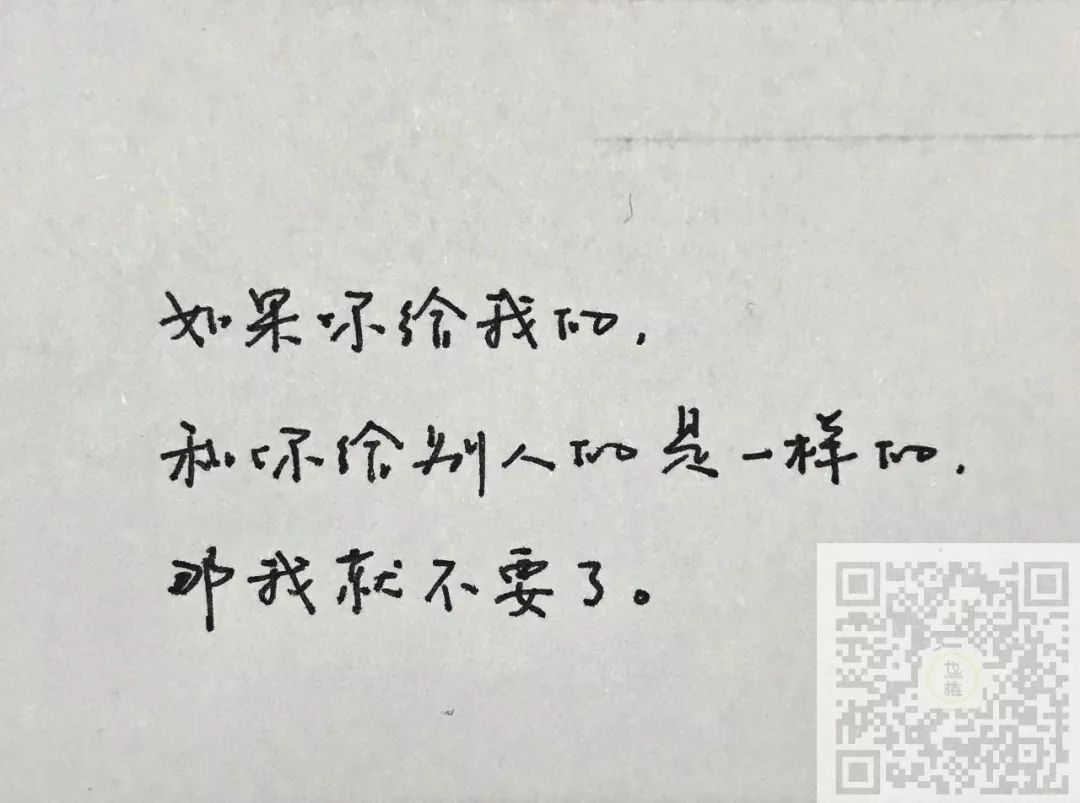 如果你给我的,
和你给别人的是一样的,
那我就不要了。